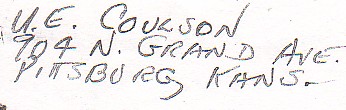 U.E. COULSON
904 N. GRAND AVE.
PITTSBURG, KANS.